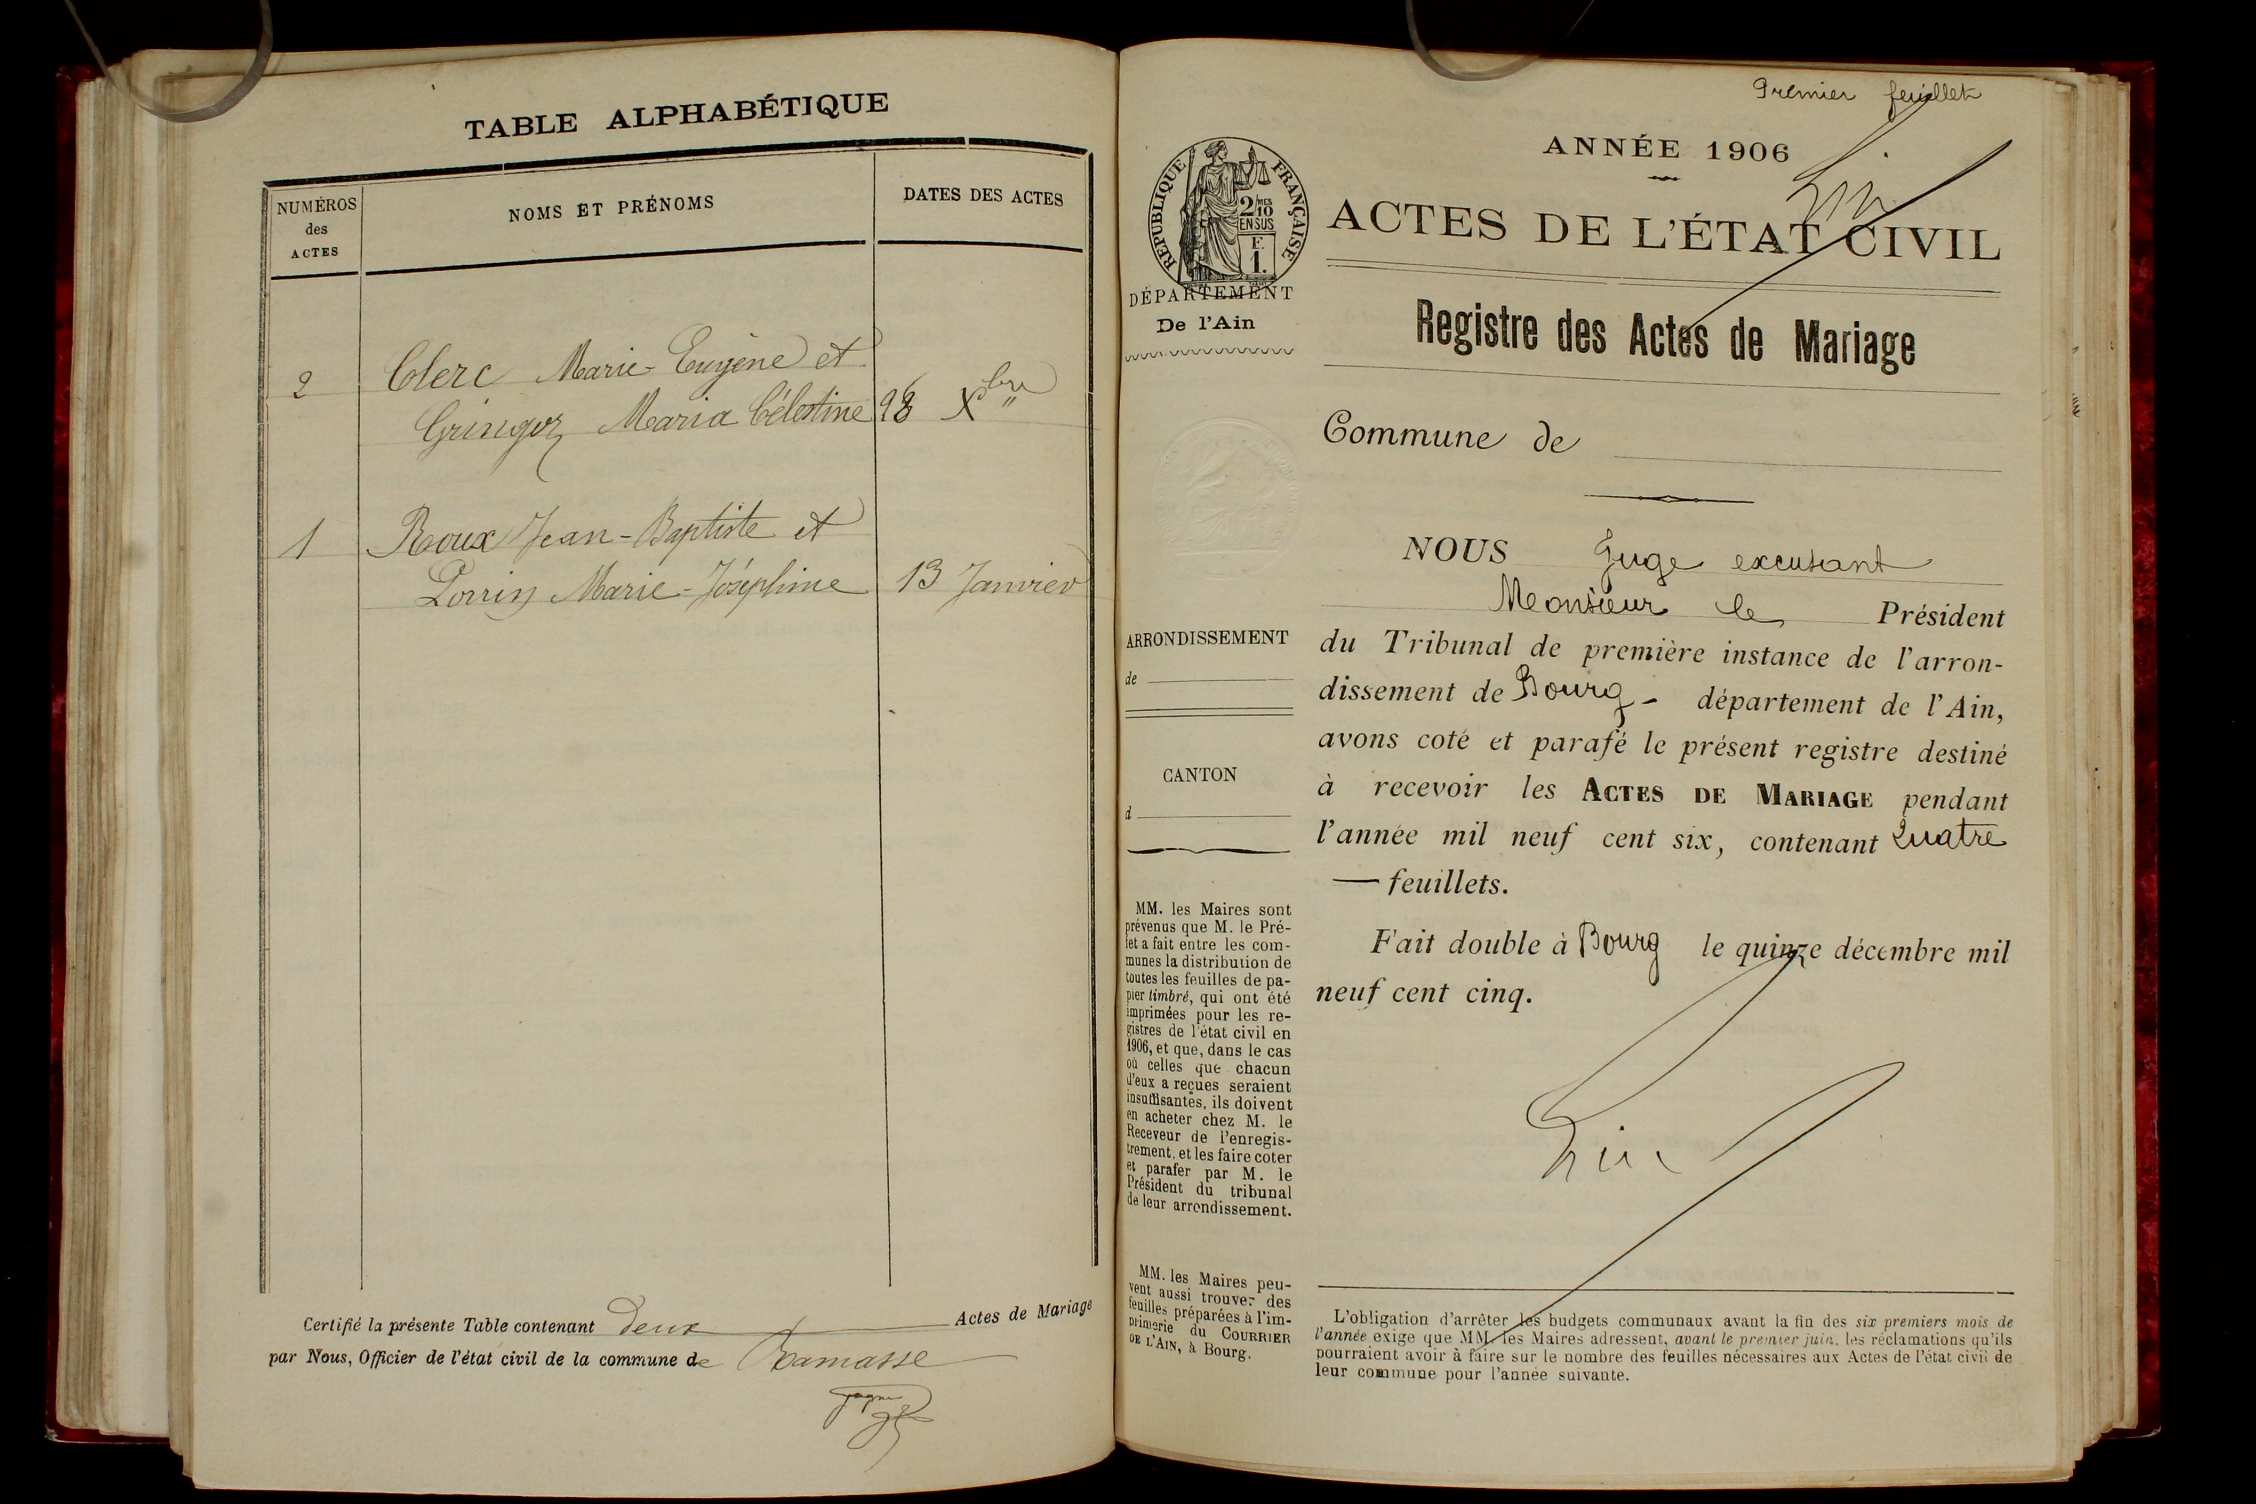 TABLE ALPHABÉTIQUE
NUMÉROS
des
ACTES
NOMS ET PRÉNOMS
DATES DES ACTES
2 Clerc Marie-Eugène et
Gringoz Maria Célestine 28 Xbre "
1 Roux Jean-Baptiste et
Marie-Joséphine 13 Janvier
Certifié la présente Table contenant Deux Actes de Mariage
par Nous, Officier de l'état civil de la commune de Ramasse
Premier feuillet
RÉPUBLIQUE FRANÇAISE
2/10MES
EN SUS
F.
1.
DÉPARTEMENT
De l'Ain
ARRONDISSEMENT
de
CANTON
d
MM. les Maires sont
prévenus que M. le Pré-
fet a fait entre les com-
munes la distribution de
toutes les feuilles de pa-
pier timbré, qui ont été
imprimées pour les re-
gistres de l'état civil en
1906, et que, dans le cas
où celles que chacun
d'eux a reçues seraient
insuffisantes, ils doivent
en acheter chez M. le
Receveur de l'enregis-
trement, et les faire coter
et parafer par M. le
Président du tribunal
de leur arrondissement.
MM. les Maires peu-
vent aussi trouver des
feuilles préparées à l'im-
primerie du COURRIER
DE L'AIN, à Bourg.
ANNÉE 1906
ACTES DE L'ÉTAT CIVIL
Registre des Actes de Mariage
Commune de
NOUS Juge excusant
Monsieur le Président
du Tribunal de première instance de l'arron-
dissement de Bourg - département de l'Ain,
avons coté et parafé le présent registre destiné
à recevoir les ACTES DE MARIAGE pendant
l'année mil neuf cent six, contenant Quatre
— feuillets.
Fait double à Bourg le quinze décembre mil
neuf cent cinq.
L'obligation d'arrêter les budgets communaux avant la fin des six premiers mois de
l'année exige que MM. les Maires adressent, avant le premier juin, les réclamations qu'ils
pourraient avoir à faire sur le nombre des feuilles nécessaires aux Actes de l'état civil de
leur commune pour l'année suivante.